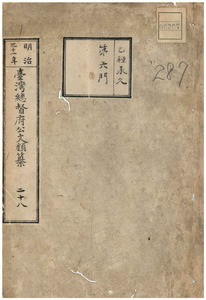 乙種永久
第六門
287
明治
三十一年
臺灣總督府公文類纂
二十八